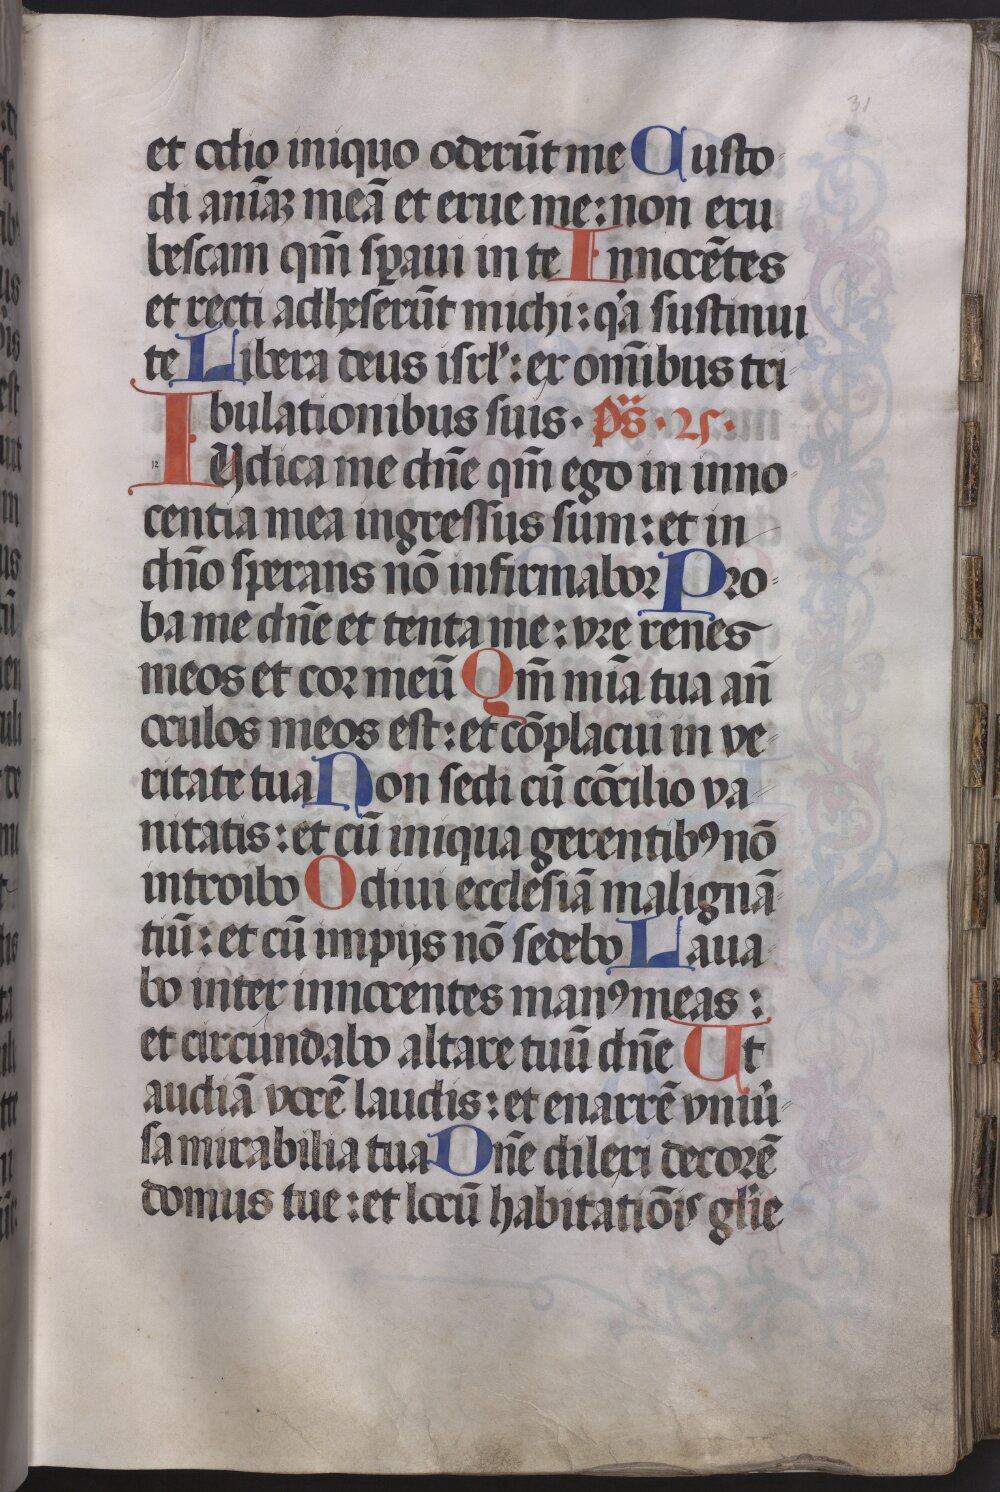 31
et odio iniquo oderūt me Custo⸗
di aniāꝫ meā et erue me: non eru
bescam qm̄ sꝑaui in te Innocētes
et recti adheserūt michi: q̓a sustinui
te Libera deus isrl̓: ex om̄ibus tri⸗
bulationibus suis. ps̄. 25.
IUdica me dn̄e qm̄ ego in inno⸗
centia mea ingressus sum: et in
dn̄o sperans nō infirmabor Pro⸗
ba me dn̄e et tenta me: vre renes
meos et cor meū Qm̄ mīa tua an̄
oculos meos est: et cōplacui in ve⸗
ritate tua Non sedi cū cōcilio va⸗
nitatis: et cū iniqua gerentibꝰ nō
introibo Odiui ecclesiā malignā⸗
tiū: et cū impijs nō sedebo Laua⸗
bo inter innocentes manꝰ meas:
et circundabo altare tuū dn̄e Ut
audiā vocē laudis: et enarrē vniu̓⸗
sa mirabilia tua Dn̄e dilexi decorē
domus tue: et locū habitatiōis gl̓ie